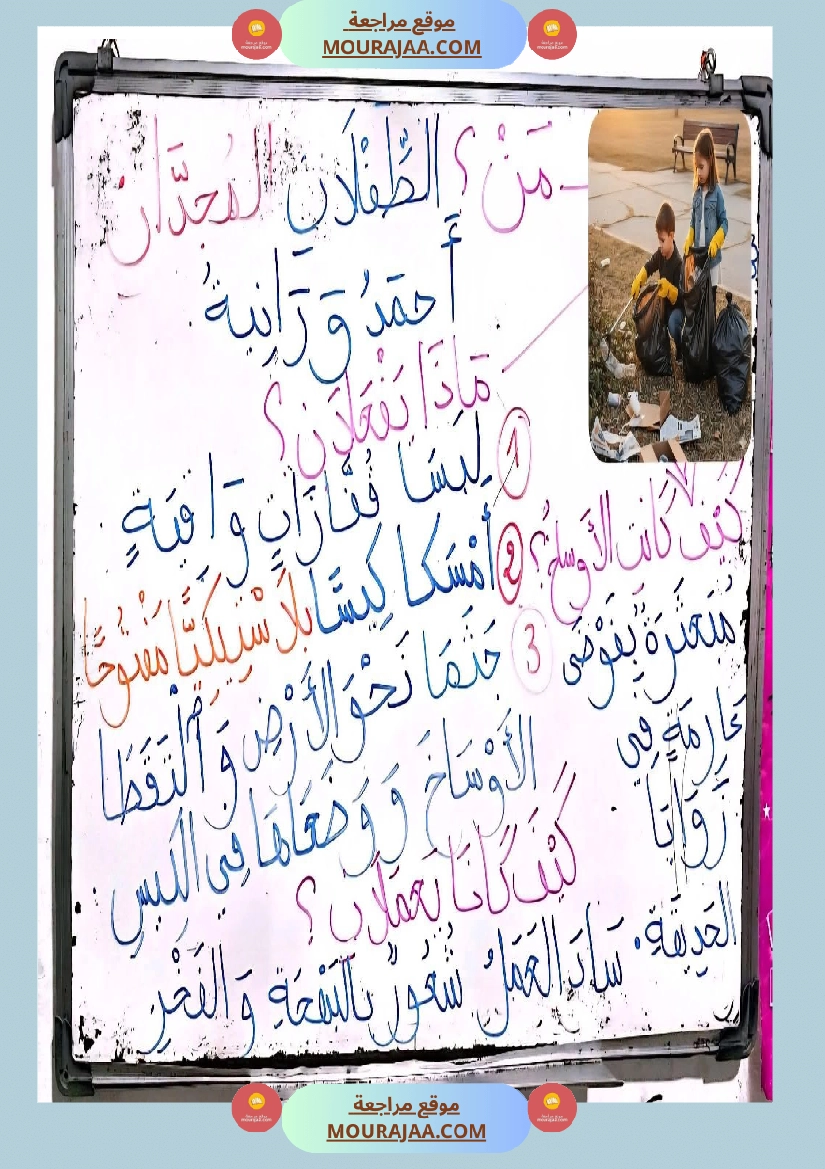 موقع مراجعة
MOURAJAA.COM
مَنْ؟ الطِّفْلَانِ المُجِدَّانِ
أَحمَدُ وَ رَانِيةُ
مَاذَا يَفْعَلَانِ؟
① لَبِسَا قُفَّازَاتٍ وَاقِيَةٍ
② أَمْسَكَا كِيسًا بلَاسْتِيكِيًّا مَفْتُوحًا
③ جَثَمَا نَحْوَ الأَرْضِ وَ الْتَقَطَا
الأَوْسَاخَ وَ وَضَعَاهَا فِي الكِيسِ
كَيْفَ كَانَت الأَوساخُ؟
مُتَعَثِّرَةٌ بِفَوْضَى
عَارِمَةٍ فِي
زَوَايَا
الحَدِيقَةِ.
كَيْفَ كَانَا يَعْمَلَانِ؟
سَادَ العَمَلُ شُعُورٌ بِالبَهْجَةِ وَ الفَخْرِ
موقع مراجعة
MOURAJAA.COM